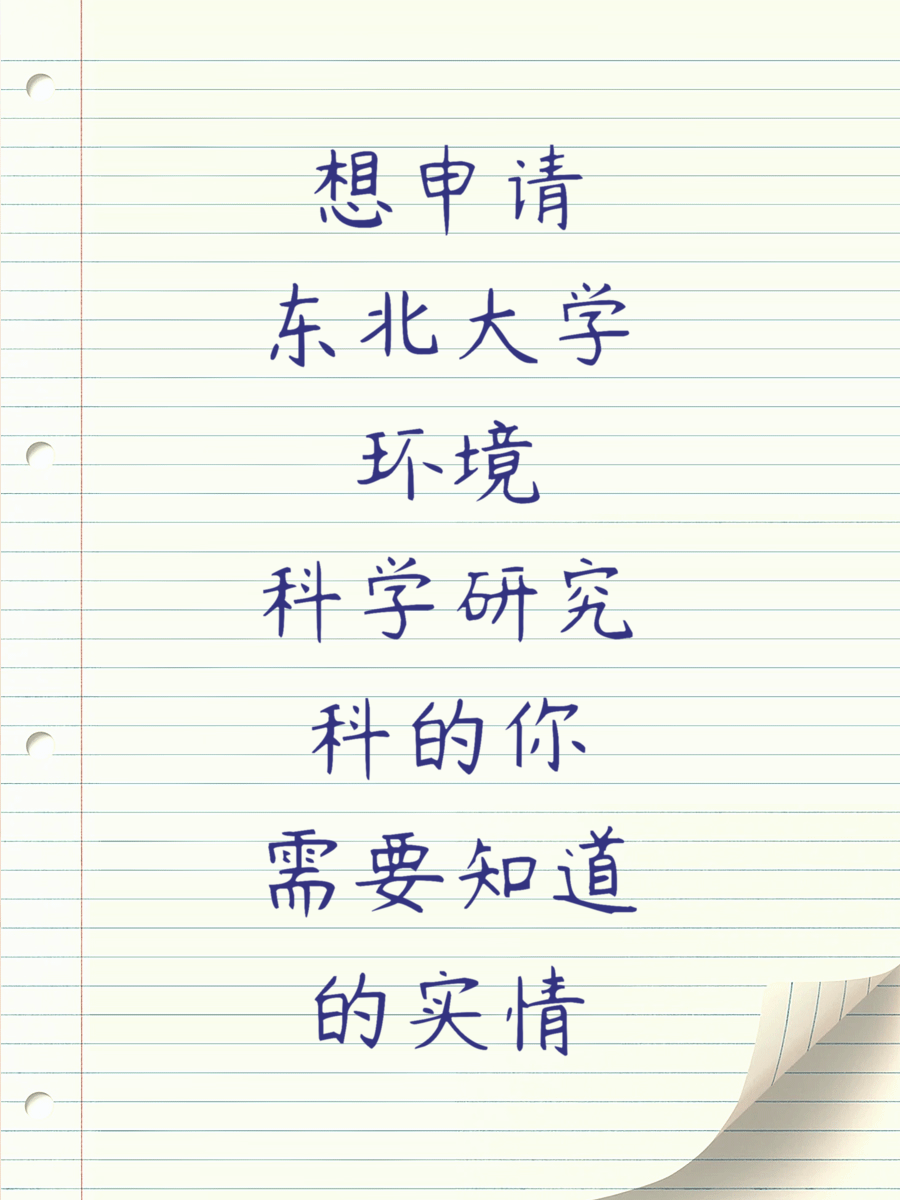 想申请
东北大学
环境
科学研究
科的你
需要知道
的实情